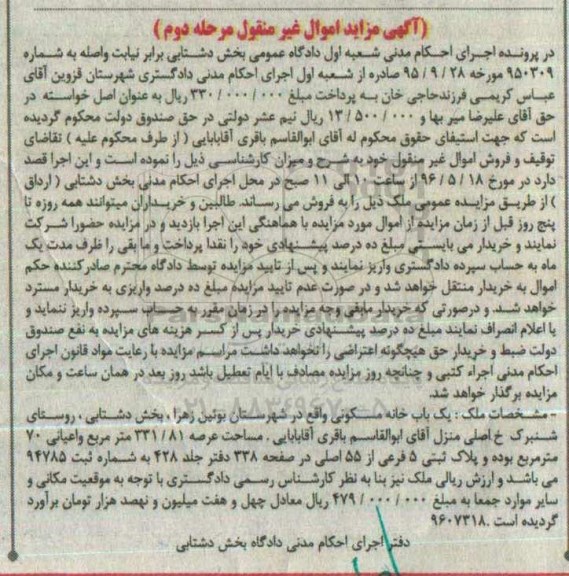 (آگهی مزاید اموال غیر منقول مرحله دوم )
در پرونده اجرای احکام مدنی شعبه اول دادگاه عمومی بخش دشتابی برابر نیابت واصله به شماره
۹۵۰۳۰۹ مورخه ۲۸ / ۹ / ۹۵ صادره از شعبه اول اجرای احکام مدنی دادگستری شهرستان قزوین آقای
عباس کریمی فرزندحاجی خان به پرداخت مبلغ ۰۰۰ / ۰۰۰ / ۳۳۰ ریال به عنوان اصل خواسته در
حق آقای علیرضا میر بها و ۰۰۰ / ۵۰۰ / ۱۳ ریال نیم عشر دولتی در حق صندوق دولت محکوم گردیده
است که جهت استیفای حقوق محکوم له آقای ابوالقاسم باقری آقابابایی ( از طرف محکوم علیه ) تقاضای
توقیف و فروش اموال غیر منقول خود به شرح و میزان کارشناسی ذیل را نموده است و این اجرا قصد
دارد در مورخ ۱۸ / ۵ / ۹۶ از ساعت ۱۰ الی ۱۱ صبح در محل اجرای احکام مدنی بخش دشتابی ( ارداق
) از طریق مزایده عمومی ملک ذیل را به فروش می رساند. طالبین و خریداران میتوانند همه روزه تا
پنج روز قبل از زمان مزایده از اموال مورد مزایده با هماهنگی این اجرا بازدید و در مزایده حضورا شرکت
نمایند و خریدار می بایستی مبلغ ده درصد پیشنهادی خود را نقدا پرداخت و ما بقی را ظرف مدت یک
ماه به حساب سپرده دادگستری واریز نمایند و پس از تایید مزایده توسط دادگاه محترم صادرکننده حکم
اموال به خریدار منتقل خواهد شد و در صورت عدم تایید مزایده مبلغ ده درصد واریزی به خریدار مسترد
خواهد شد. و درصورتی که خریدار مابقی وجه مزایده را در زمان مقرر به حساب سپرده واریز ننماید و
یا اعلام انصراف نمایند مبلغ ده درصد پیشنهادی خریدار پس از کسر هزینه های مزایده به نفع صندوق
دولت ضبط و خریدار حق هیچگونه اعتراضی را نخواهد داشت مراسم مزایده با رعایت مواد قانون اجرای
احکام مدنی اجراء کتبی و چنانچه روز مزایده مصادف با ایام تعطیل باشد روز بعد در همان ساعت و مکان
مزایده برگذار خواهد شد.
- مشخصات ملک : یک باب خانه مسکونی واقع در شهرستان بوئین زهرا ، بخش دشتابی ، روستای
شنبرک خ اصلی منزل آقای ابوالقاسم باقری آقابابایی . مساحت عرصه ۸۱ / ۳۳۱ متر مربع واعیانی ۷۰
مترمربع بوده و پلاک ثبتی ۵ فرعی از ۵۵ اصلی در صفحه ۳۳۸ دفتر جلد ۴۲۸ به شماره ثبت ۹۴۷۸۵
می باشد و ارزش ریالی ملک نیز بنا به نظر کارشناس رسمی دادگستری با توجه به موقعیت مکانی و
سایر موارد جمعا به مبلغ ۰۰۰ / ۰۰۰ / ۴۷۹ ریال معادل چهل و هفت میلیون و نهصد هزار تومان برآورد
گردیده است .۹۶۰۷۳۱۸
دفتر اجرای احکام مدنی دادگاه بخش دشتابی